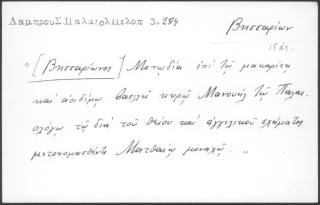 Λαμπρου Σ. Παλαιολ Πελοπ 3. 284
Βησσαρίων
" [Βησσαρίωνος] Μονῳδία ἐπὶ τῷ μακαρίτῃ
καὶ ἀοιδίμῳ βασιλεῖ κυρῷ Μανουὴλ τῷ Παλαι-
ολόγῳ τῷ διὰ τοῦ θείου καὶ ἀγγελικοῦ σχήματος
μετονομασθέντι Ματθαίῳ μοναχῷ. "